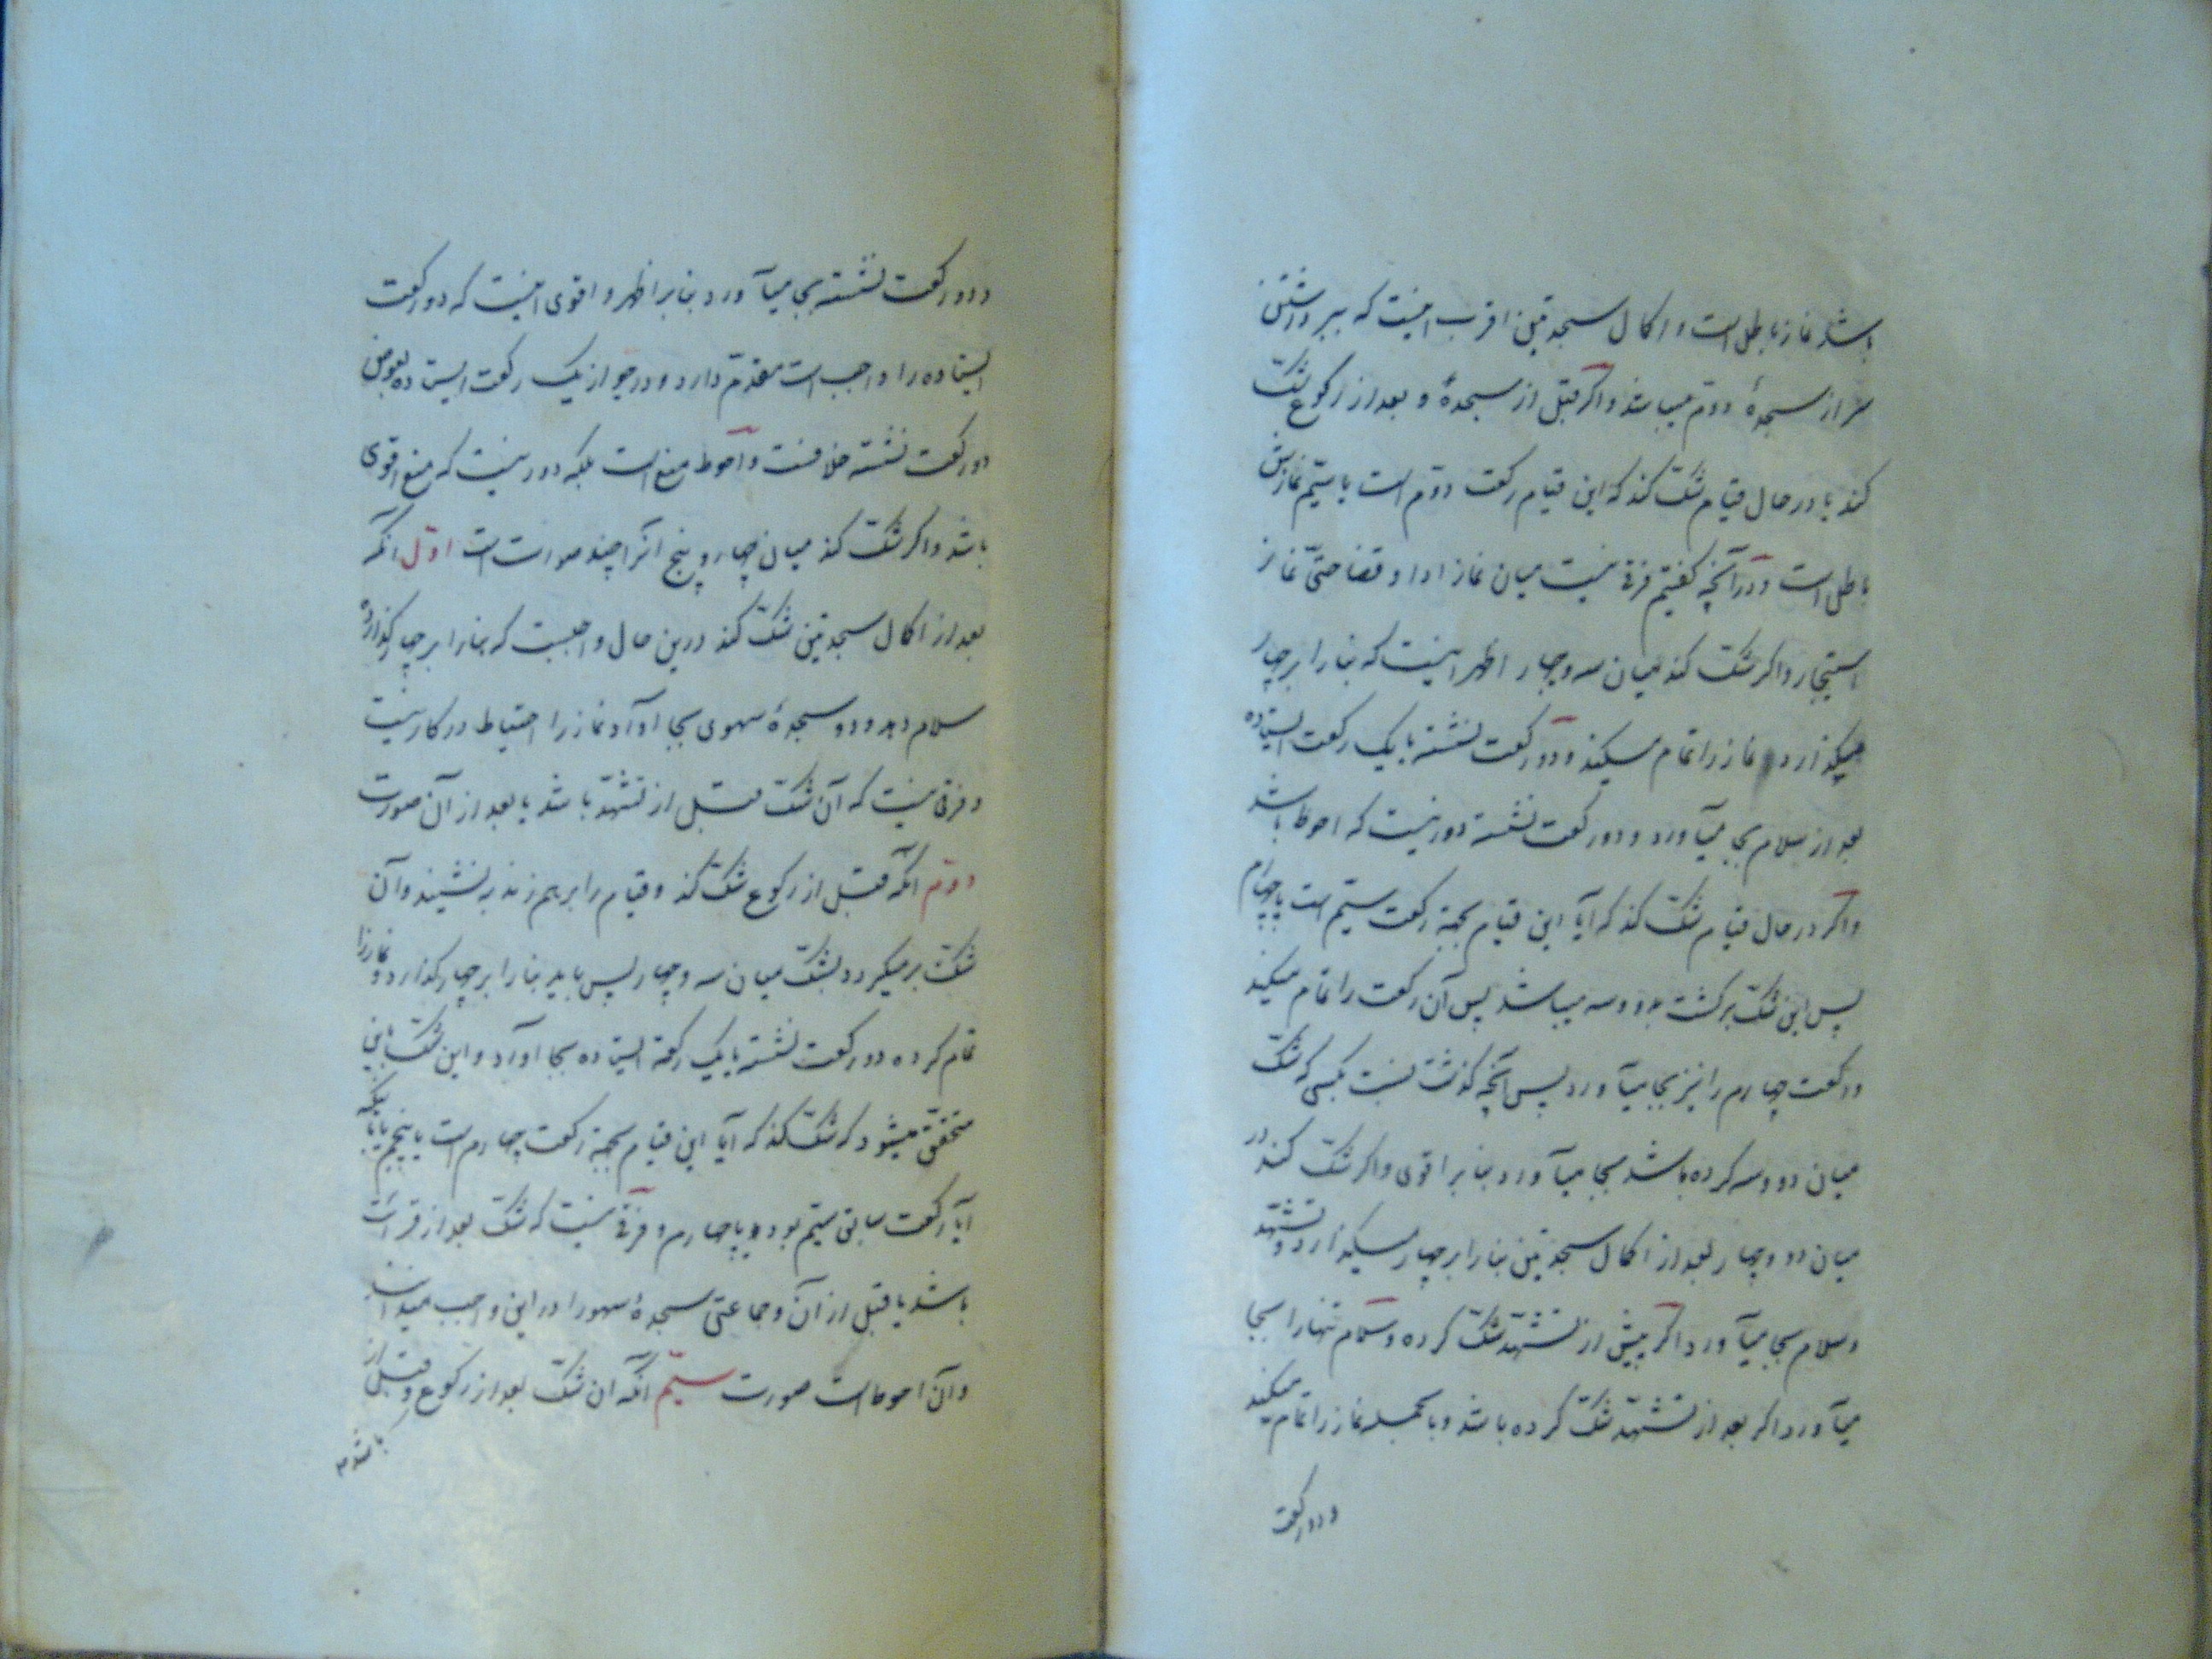 باشد نماز باطل است و اکمال سجدتین اقرب اینست که ببرداشتن
سر از سجدهٔ دوم میباشد و اگر قبل از سجدهٔ و بعد از رکوع شک
کند یا در حال قیام شک کند که این قیام رکعت دوم است یا سیّم نمازش
باطل است و در آنچه گفتیم فرقی نیست میان نماز ادا و قضا حتّی نماز
استیجار و اگر شک کند میان سه و چهار اظهر اینست که بنا را بر چهار
میگذارد نماز را تمام میکند و دو رکعت نشسته یا یک رکعت ایستاده
بعد از سلام بجا میآورد و دو رکعت نشسته دور نیست که احوط باشد
و اگر در حال قیام شک کند که آیا این قیام بجهة رکعت سیّم است یا چهارم
پس این شک برگشت بدو و سه میباشد پس آن رکعت را تمام میکند
و رکعت چهارم را نیز بجا میآورد پس آنچه گذشت نسبت بکسی که شک
میان دو و سه کرده باشد بجا میآورد بنا بر اقوی و اگر شک کند در
میان دو و چهار بعد از اکمال سجدتین بنا را بر چهار میگذارد و تشهد
و سلام بجا میآورد اگر پیش از تشهّد شک کرده و سلام تنها را بجا
میآورد اگر بعد از تشهّد شک کرده باشد و بالجمله نماز را تمام میکند
و دو رکعت
و دو رکعت نشسته بجا میآورد بنا بر اظهر و اقوی اینست که دو رکعت
ایستاده را واجب است مقدّم دارد و در جواز یک رکعت ایستاده بعوض
دو رکعت نشسته خلافست و احوط منع است بلکه دور نیست که منع اقوی
باشد و اگر شک کند میان چهار و پنج آنرا چند صورت است اوّل آنکه
بعد از اکمال سجدتین شک کند درین حال واجبست که بنا را بر چهار گذارده
سلام دهد و دو سجدهٔ سهوی بجا آورد نماز را احتیاط در کار نیست
و فرقی نیست که آن شک قبل از تشهّد باشد یا بعد از آن صورت
دوّم آنکه قبل از رکوع شک کند و قیام را برهم زند بنشیند و آن
شک برمیگردد بشک میان سه و چهار پس باید بنا را بر چهار گذارد و نماز را
تمام کرده دو رکعت نشسته یا یک رکعة ایستاده بجا آورد و این شک باین
متحقّق میشود که شک کند که آیا این قیام بجهة رکعت چهارم است یا پنجم یا بآنکه
آیا رکعت سابق سیّم بوده یا چهارم و فرقی نیست که شک بعد از قرائت
باشد یا قبل از آن و جماعتی سجدهٔ سهو را در این واجب میدانند
و آن احوط است صورت سیّم آنکه آن شک بعد از رکوع و قبل از